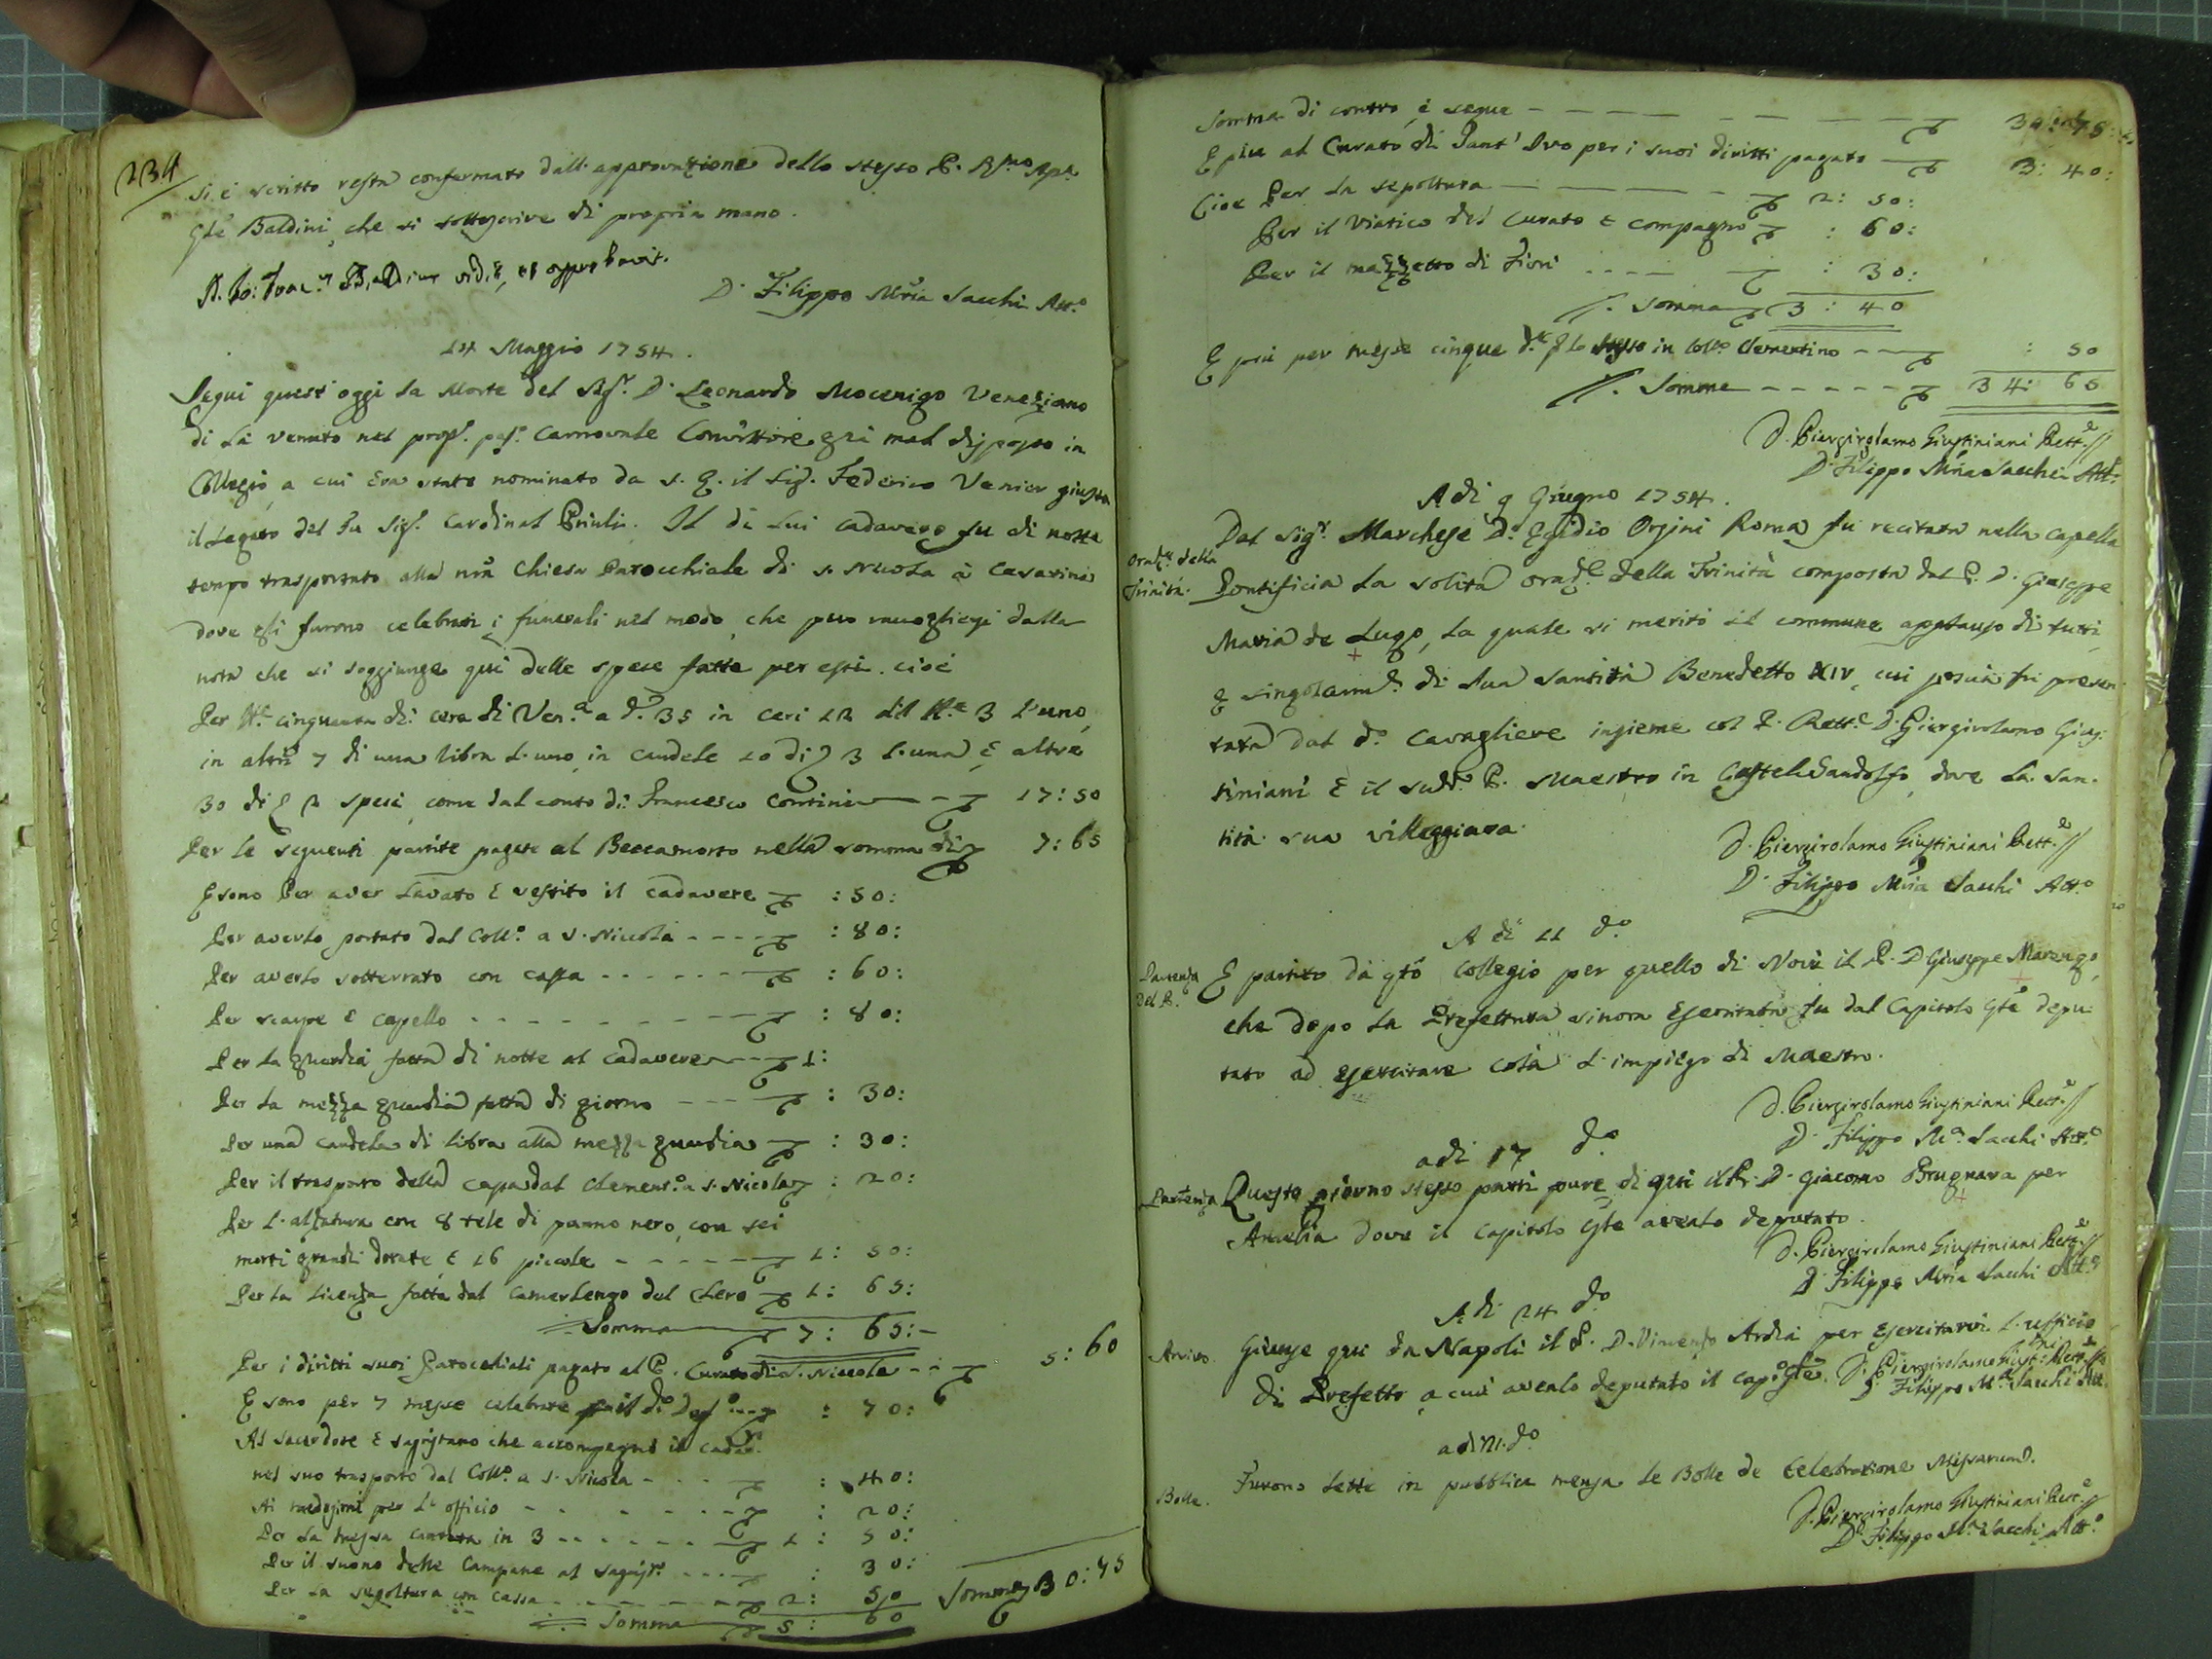 234
si è scritto resta confermato dall'approvazione dello stesso P. Rmo Npro
Gle Baldini, che si sottoscrive di propria mano.
D. Filippo Mria Sacchi Att.o
14 Maggio 1754.
Seguì quest'oggi la Morte del Sigr. D. Leonardo Mocenigo Veneziano
di là venuto nel pross. pass. Carnovale Convittore qui mal disposto in
Collegio, a cui era stato nominato da S. E. il Sig. Federico Venier giusta
il Legato del fu Sigr. Cardinal Priuli. Il di lui cadavero fu di notte
tempo trasportato alla nra Chiesa Parocchiale di S. Nicola à Cesarini
dove gli furono celebrati i funerali nel modo, che può raccogliersi dalla
nota che si soggiunge quì delle spese fatte per essi. cioè
Per lb.e cinquanta di cera di Ven.a a d. 35 in ceri 12 di lb.e 3 l'uno,
in altri 7 di una libra l'uno, in candele 10 di 3 l'una, è altre
30 di 2 spesi, come dal conto di Francesco Contini - 17:50
Per le seguenti partite pagate al Beccamorto nella somma di 7:65
E sono Per aver lavato è vestito il cadavere :50:
Per averlo portato dal Coll.o a S. Niccola - - - - :80:
Per averlo sotterrato con cassa - - - - - - :60:
Per scarpe è capello - - - - - - - - :80:
Per la guardia fatta di notte al cadavere - - 1:
Per la mezza guardia fatta di giorno - - - :30:
Per una candela di libra alla mezza guardia :30:
Per il trasporto della cassa dal Clement.o a S. Nicola :20:
Per l'alzatura con 8 tele di panno nero, con sei
morti grandi dorate, è 16 piccole - - - - - 1:50:
Per la licenza fatta dal Camerlengo del Clero 1:65:
Somma 7:65:-
Per i diritti suoi Parocchiali pagato al P. Curato di S. Niccola - - 5:60
E sono per 7 messe celebrate :70:
Al sacerdote è sagrestano che accompagnò il cadav.
nel suo trasporto dal Coll.o a S. Nicola - - - :40:
Ai medesimi per l'officio - - - - - :20:
Per la messa cantata in 3 - - - - - 1:50:
Per il suono delle Campane al sagrist.o - - - :30:
Per la sepoltura con cassa - - - - - 2:50
Somma 5:60
Somma 30:75
Somma di contro, è segue - - - - - - - - 30:75:
E più al Curato di Sant'Ivo per i suoi diritti pagato 3:40:
Cioè Per la sepoltura - - - - - 2:50:
Per il Viatico del Curato è compagno :60:
Per il mazzetto di Fiori - - - - :30:
Somma 3:40
E più per messe cinque d.e p lo stesso in Coll.o Clementino - - - :50
Somma - - - - - - 34:65
D. Piergirolamo Giustiniani Rett.e
D. Filippo Mria Sacchi Att.o
A dì 9 Giugno 1754.
Oraz.e della
Trinità.
Dal Sigr. Marchese D. Egidio Orsini Roma fu recitata nella capella
Pontificia la solita oraz.e della Trinità composta dal P. D. Giuseppe
Maria de Lugo, la quale si meritò il commune applauso di tutti,
e singolarm.e di Sua Santità Benedetto XIV, cui poscia fu presen-
tata dal d.o Cavagliere insieme col P. Rett.e D. Piergirolamo Gius-
tiniani è il sudd.o P. Maestro in Castel Gandolfo, dove la San-
tità sua villeggiava.
D. Piergirolamo Giustiniani Rett.e
D. Filippo Mria Sacchi Att.o
A dì 11 d.o
Partenza
del P.
È partito da qsto Collegio per quello di Novi il P. D. Giuseppe Marengo,
che dopo la Prefettura sinora esercitata fu dal Capitolo Gle depu-
tato ad esercitare colà l'impiego di Maestro.
D. Piergirolamo Giustiniani Rett.e
D. Filippo M.a Sacchi Att.o
adì 17 d.o
Partenza
Questo giorno stesso partì pure di qui il Pr. D. Giacomo Brugnara per
Amelia dove il capitolo Gle avealo deputato.
D. Piergirolamo Giustiniani Rett.e
D. Filippo Mria Sacchi Att.o
A dì 24 d.o
Arrivo.
Giunse qui da Napoli il P. D. Vincenzo Ardia per esercitarvi l'ufficio
di Prefetto, a cui avealo deputato il cap.o Gle. D. Piergirolamo Giust.ni Rett.e
D. Filippo M.a Sacchi Att.o
adì d.o
Bolle.
Furono lette in pubblica mensa le Bolle de Celebratione Missarum.
D. Piergirolamo Giustiniani Rett.e
D. Filippo M.a Sacchi Att.o